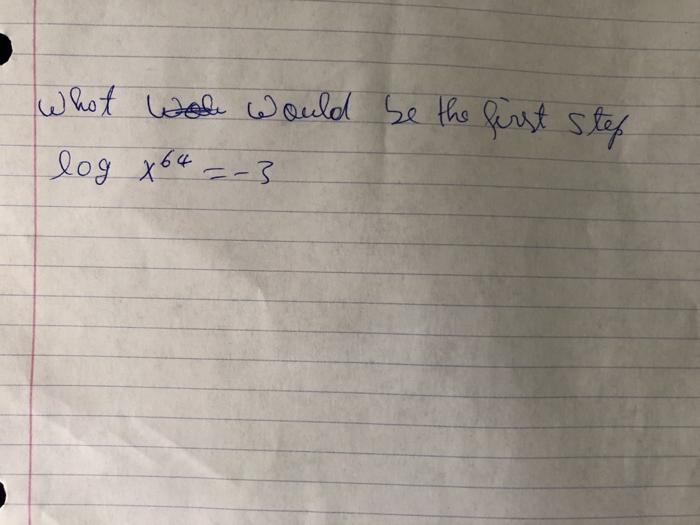 What would be the first step
log x⁶⁴ = -3